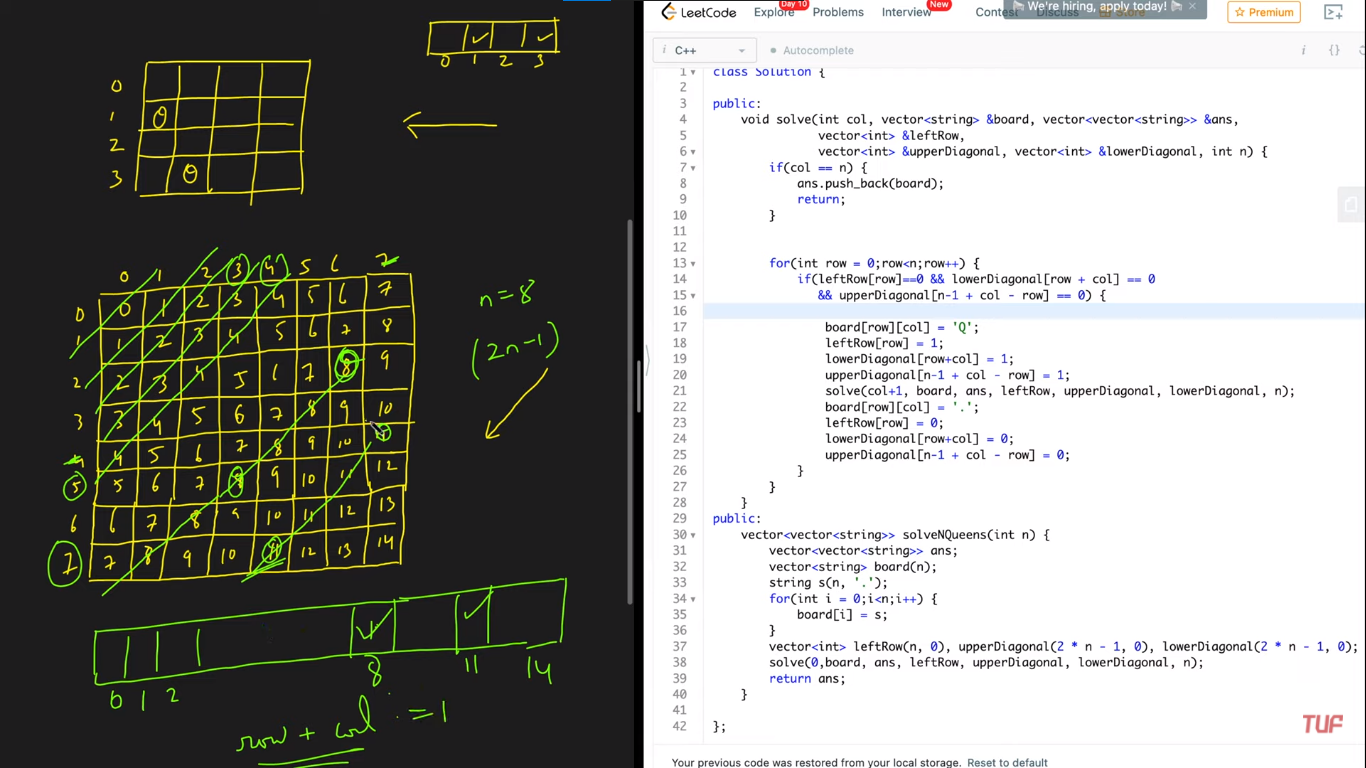 0 1 2 3
0
1 Q
2
3 Q
0 1 2 3 4 5 6 7
0 0 1 2 3 4 5 6 7
1 1 2 3 4 5 6 7 8
2 2 3 4 5 6 7 8 9
3 3 4 5 6 7 8 9 10
4 4 5 6 7 8 9 10 11
5 5 6 7 8 9 10 11 12
6 6 7 8 9 10 11 12 13
7 7 8 9 10 11 12 13 14
n = 8
(2n-1)
0 1 2 8 11 14
row + col = 1
LeetCode Explore Problems Interview Contest Discuss Store
Day 10
New
We're hiring, apply today!
Premium
C++
Autocomplete
1 class Solution {
2
3 public:
4 void solve(int col, vector<string> &board, vector<vector<string>> &ans,
5 vector<int> &leftRow,
6 vector<int> &upperDiagonal, vector<int> &lowerDiagonal, int n) {
7 if(col == n) {
8 ans.push_back(board);
9 return;
10 }
11
12
13 for(int row = 0;row<n;row++) {
14 if(leftRow[row]==0 && lowerDiagonal[row + col] == 0
15 && upperDiagonal[n-1 + col - row] == 0) {
16
17 board[row][col] = 'Q';
18 leftRow[row] = 1;
19 lowerDiagonal[row+col] = 1;
20 upperDiagonal[n-1 + col - row] = 1;
21 solve(col+1, board, ans, leftRow, upperDiagonal, lowerDiagonal, n);
22 board[row][col] = '.';
23 leftRow[row] = 0;
24 lowerDiagonal[row+col] = 0;
25 upperDiagonal[n-1 + col - row] = 0;
26 }
27 }
28 }
29 public:
30 vector<vector<string>> solveNQueens(int n) {
31 vector<vector<string>> ans;
32 vector<string> board(n);
33 string s(n, '.');
34 for(int i = 0;i<n;i++) {
35 board[i] = s;
36 }
37 vector<int> leftRow(n, 0), upperDiagonal(2 * n - 1, 0), lowerDiagonal(2 * n - 1, 0);
38 solve(0,board, ans, leftRow, upperDiagonal, lowerDiagonal, n);
39 return ans;
40 }
41
42 };
TUF
Your previous code was restored from your local storage. Reset to default